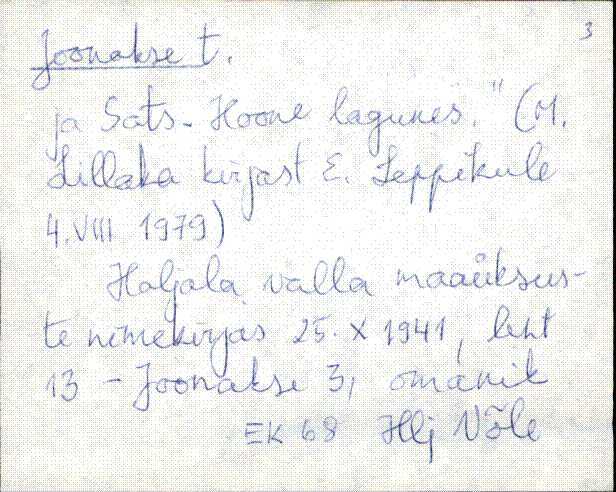 3
Joonakse t.
ja Sats. Hoone lagunes." (M.
Lillaka kirjast E. Leppikule
4.VIII 1979)
Haljala valla maaüksus-
te nimekirjas 25. X 1941, leht
13 - Joonakse 3, omanik
EK 68 Hlj Võle